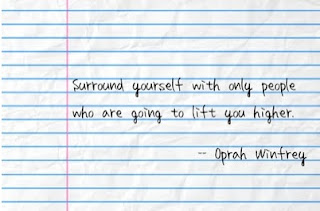 Surround yourself with only people
who are going to lift you higher.
-- Oprah Winfrey